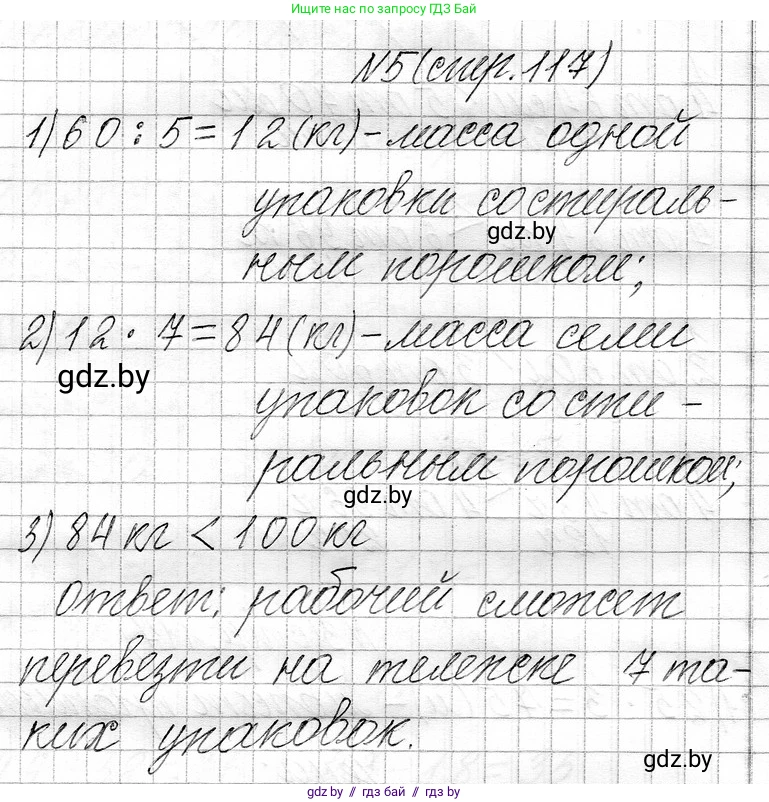 Ищите нас по запросу ГДЗ Бай
№5(стр.117)
1) 60 : 5 = 12(кг) - масса одной
упаковки со стираль-
gdz.by
ным порошком;
2) 12 · 7 = 84(кг) - масса семи
gdz.by
упаковок со сти-
ральным порошком;
gdz.by
3) 84 кг < 100 кг
Ответ: рабочий сможет
перевезти на тележке 7 та-
ких упаковок.
gdz.by
gdz.by // гдз бай // gdz.by